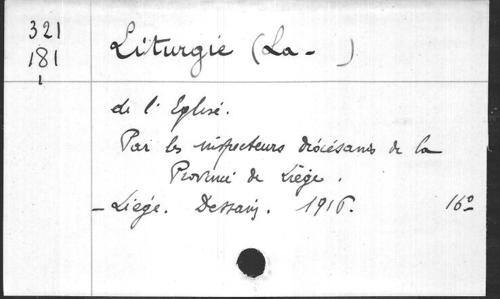 321
181
1
Liturgie (La- )
de l'Eglise.
Par les inspecteurs diocésains de la
Province de Liège.
- Liège. Dessain. 1916. 16º